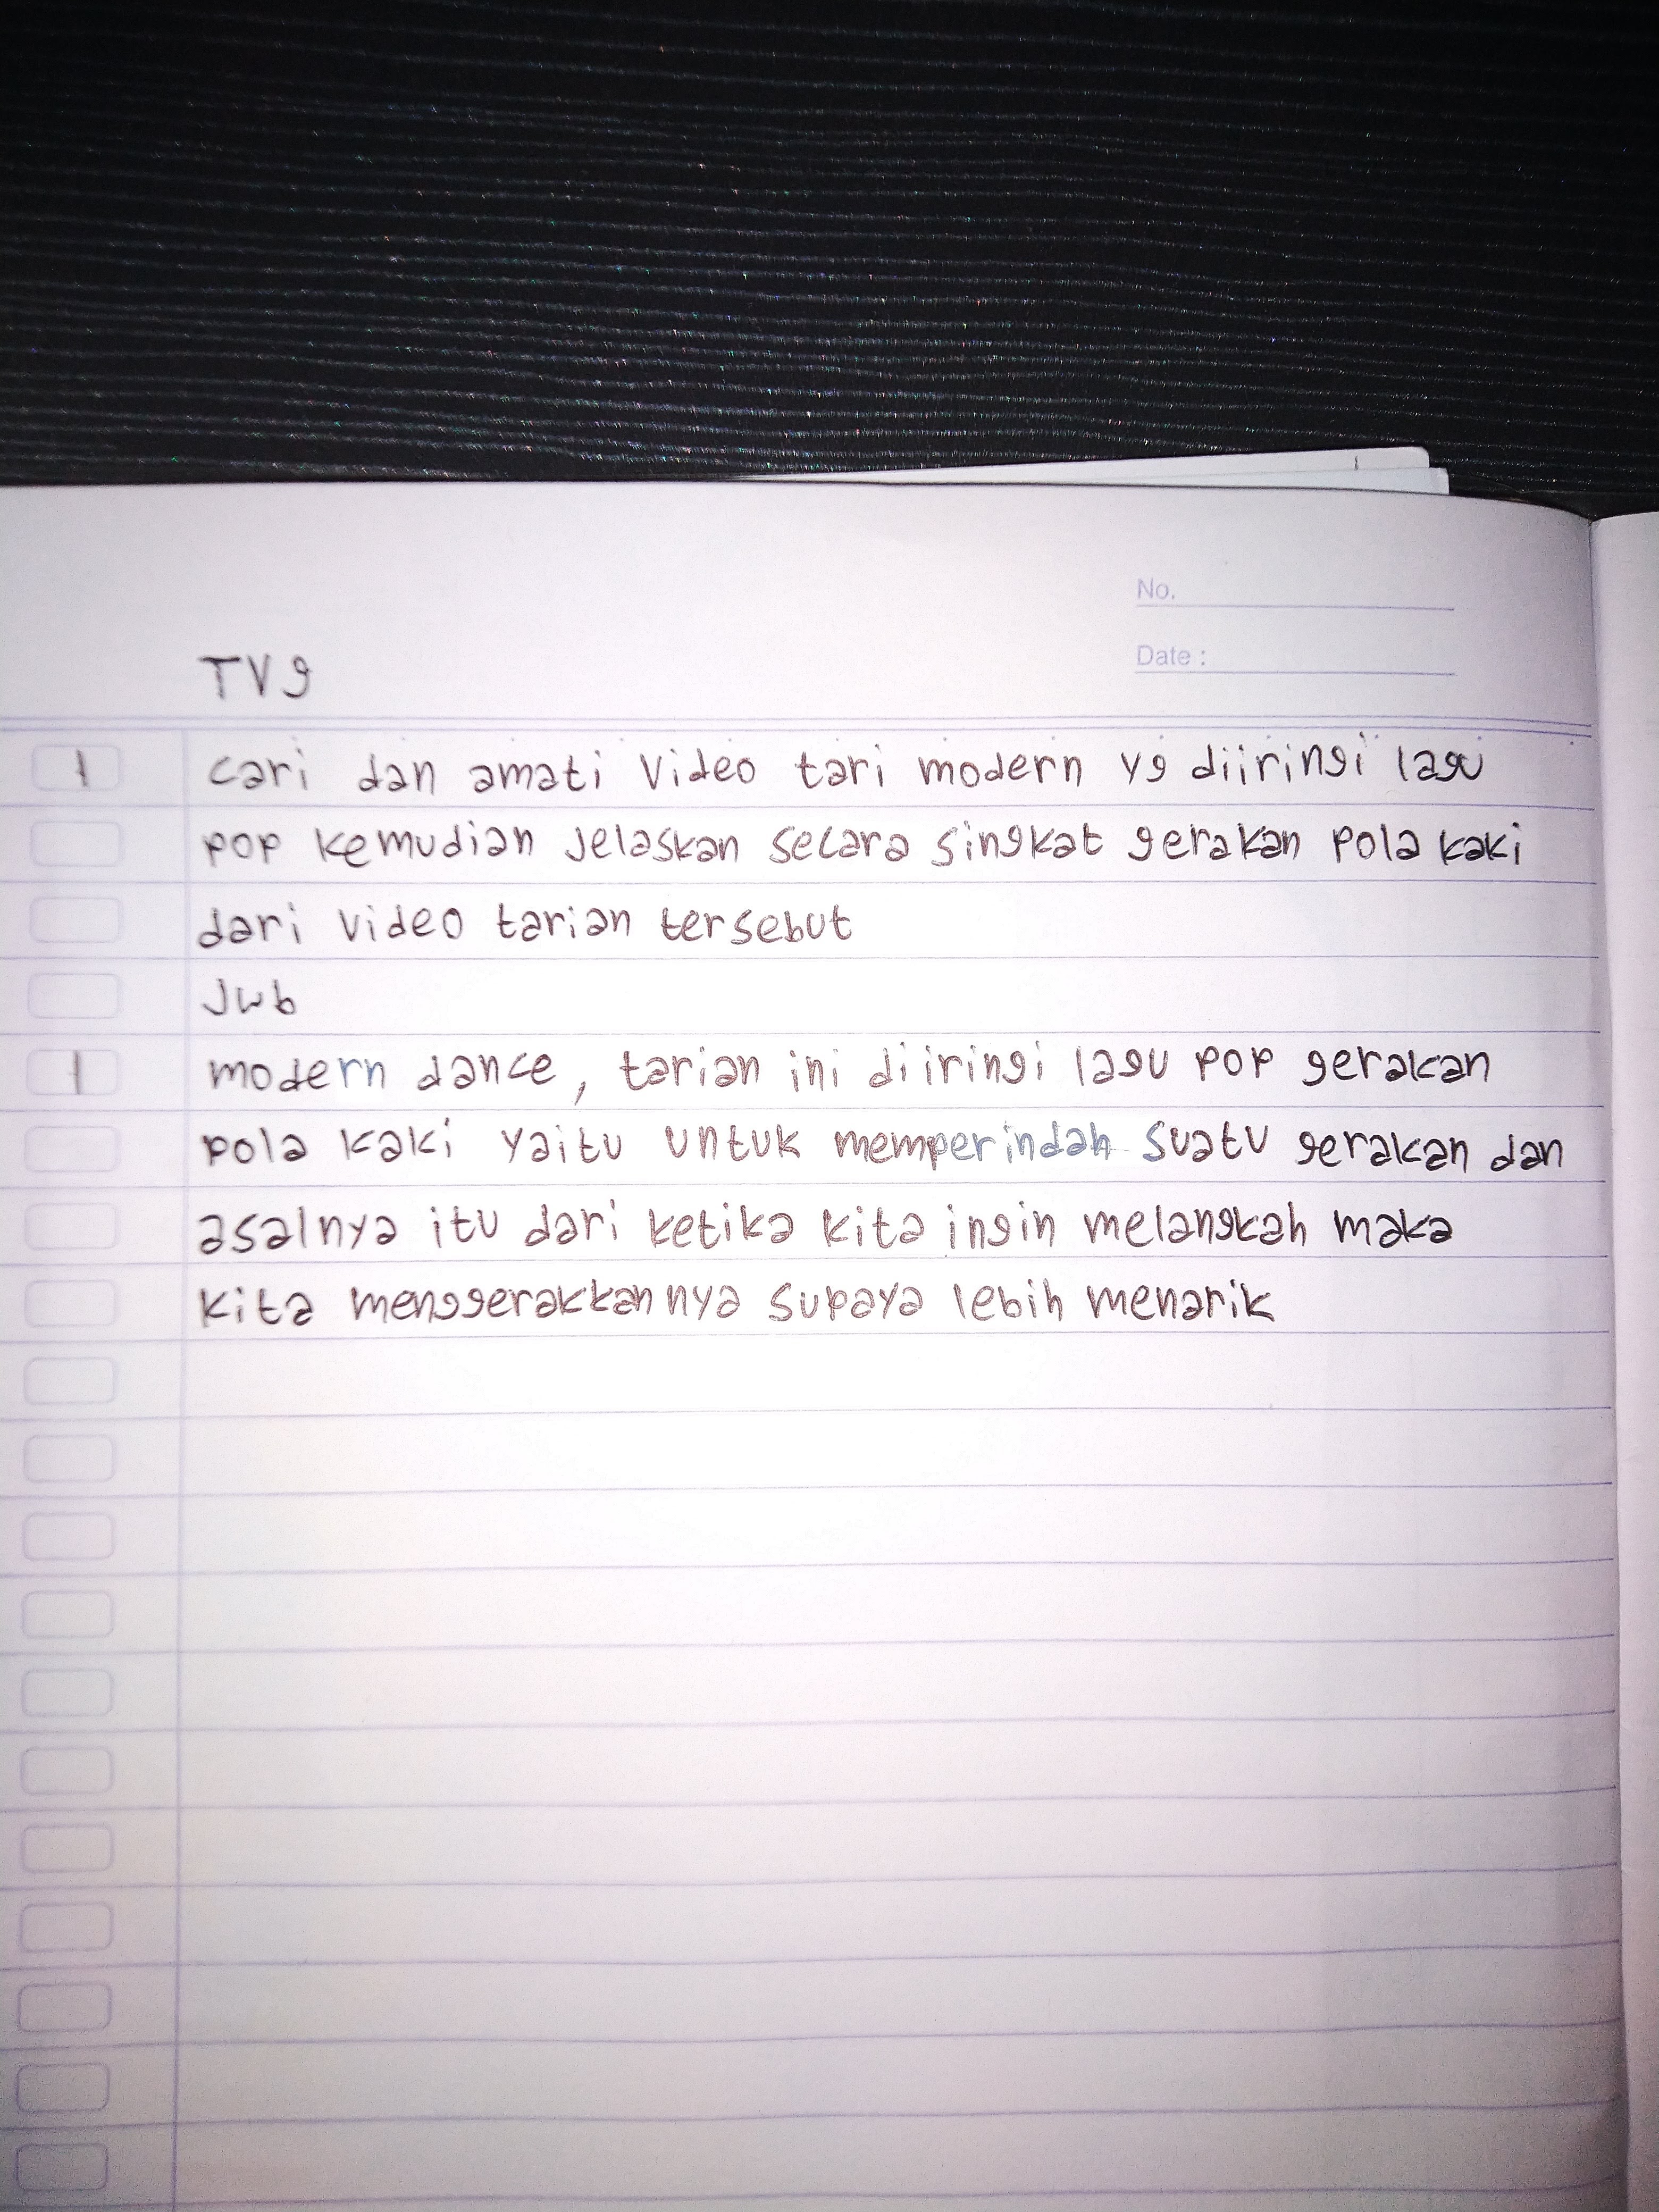 No.
Date :
TV9
1 cari dan amati video tari modern yg diiringi lagu
pop kemudian jelaskan secara singkat gerakan pola kaki
dari video tarian tersebut
Jwb
1 modern dance, tarian ini diiringi lagu pop gerakan
pola kaki yaitu untuk memperindah suatu gerakan dan
asalnya itu dari ketika kita ingin melangkah maka
kita menggerakkannya supaya lebih menarik